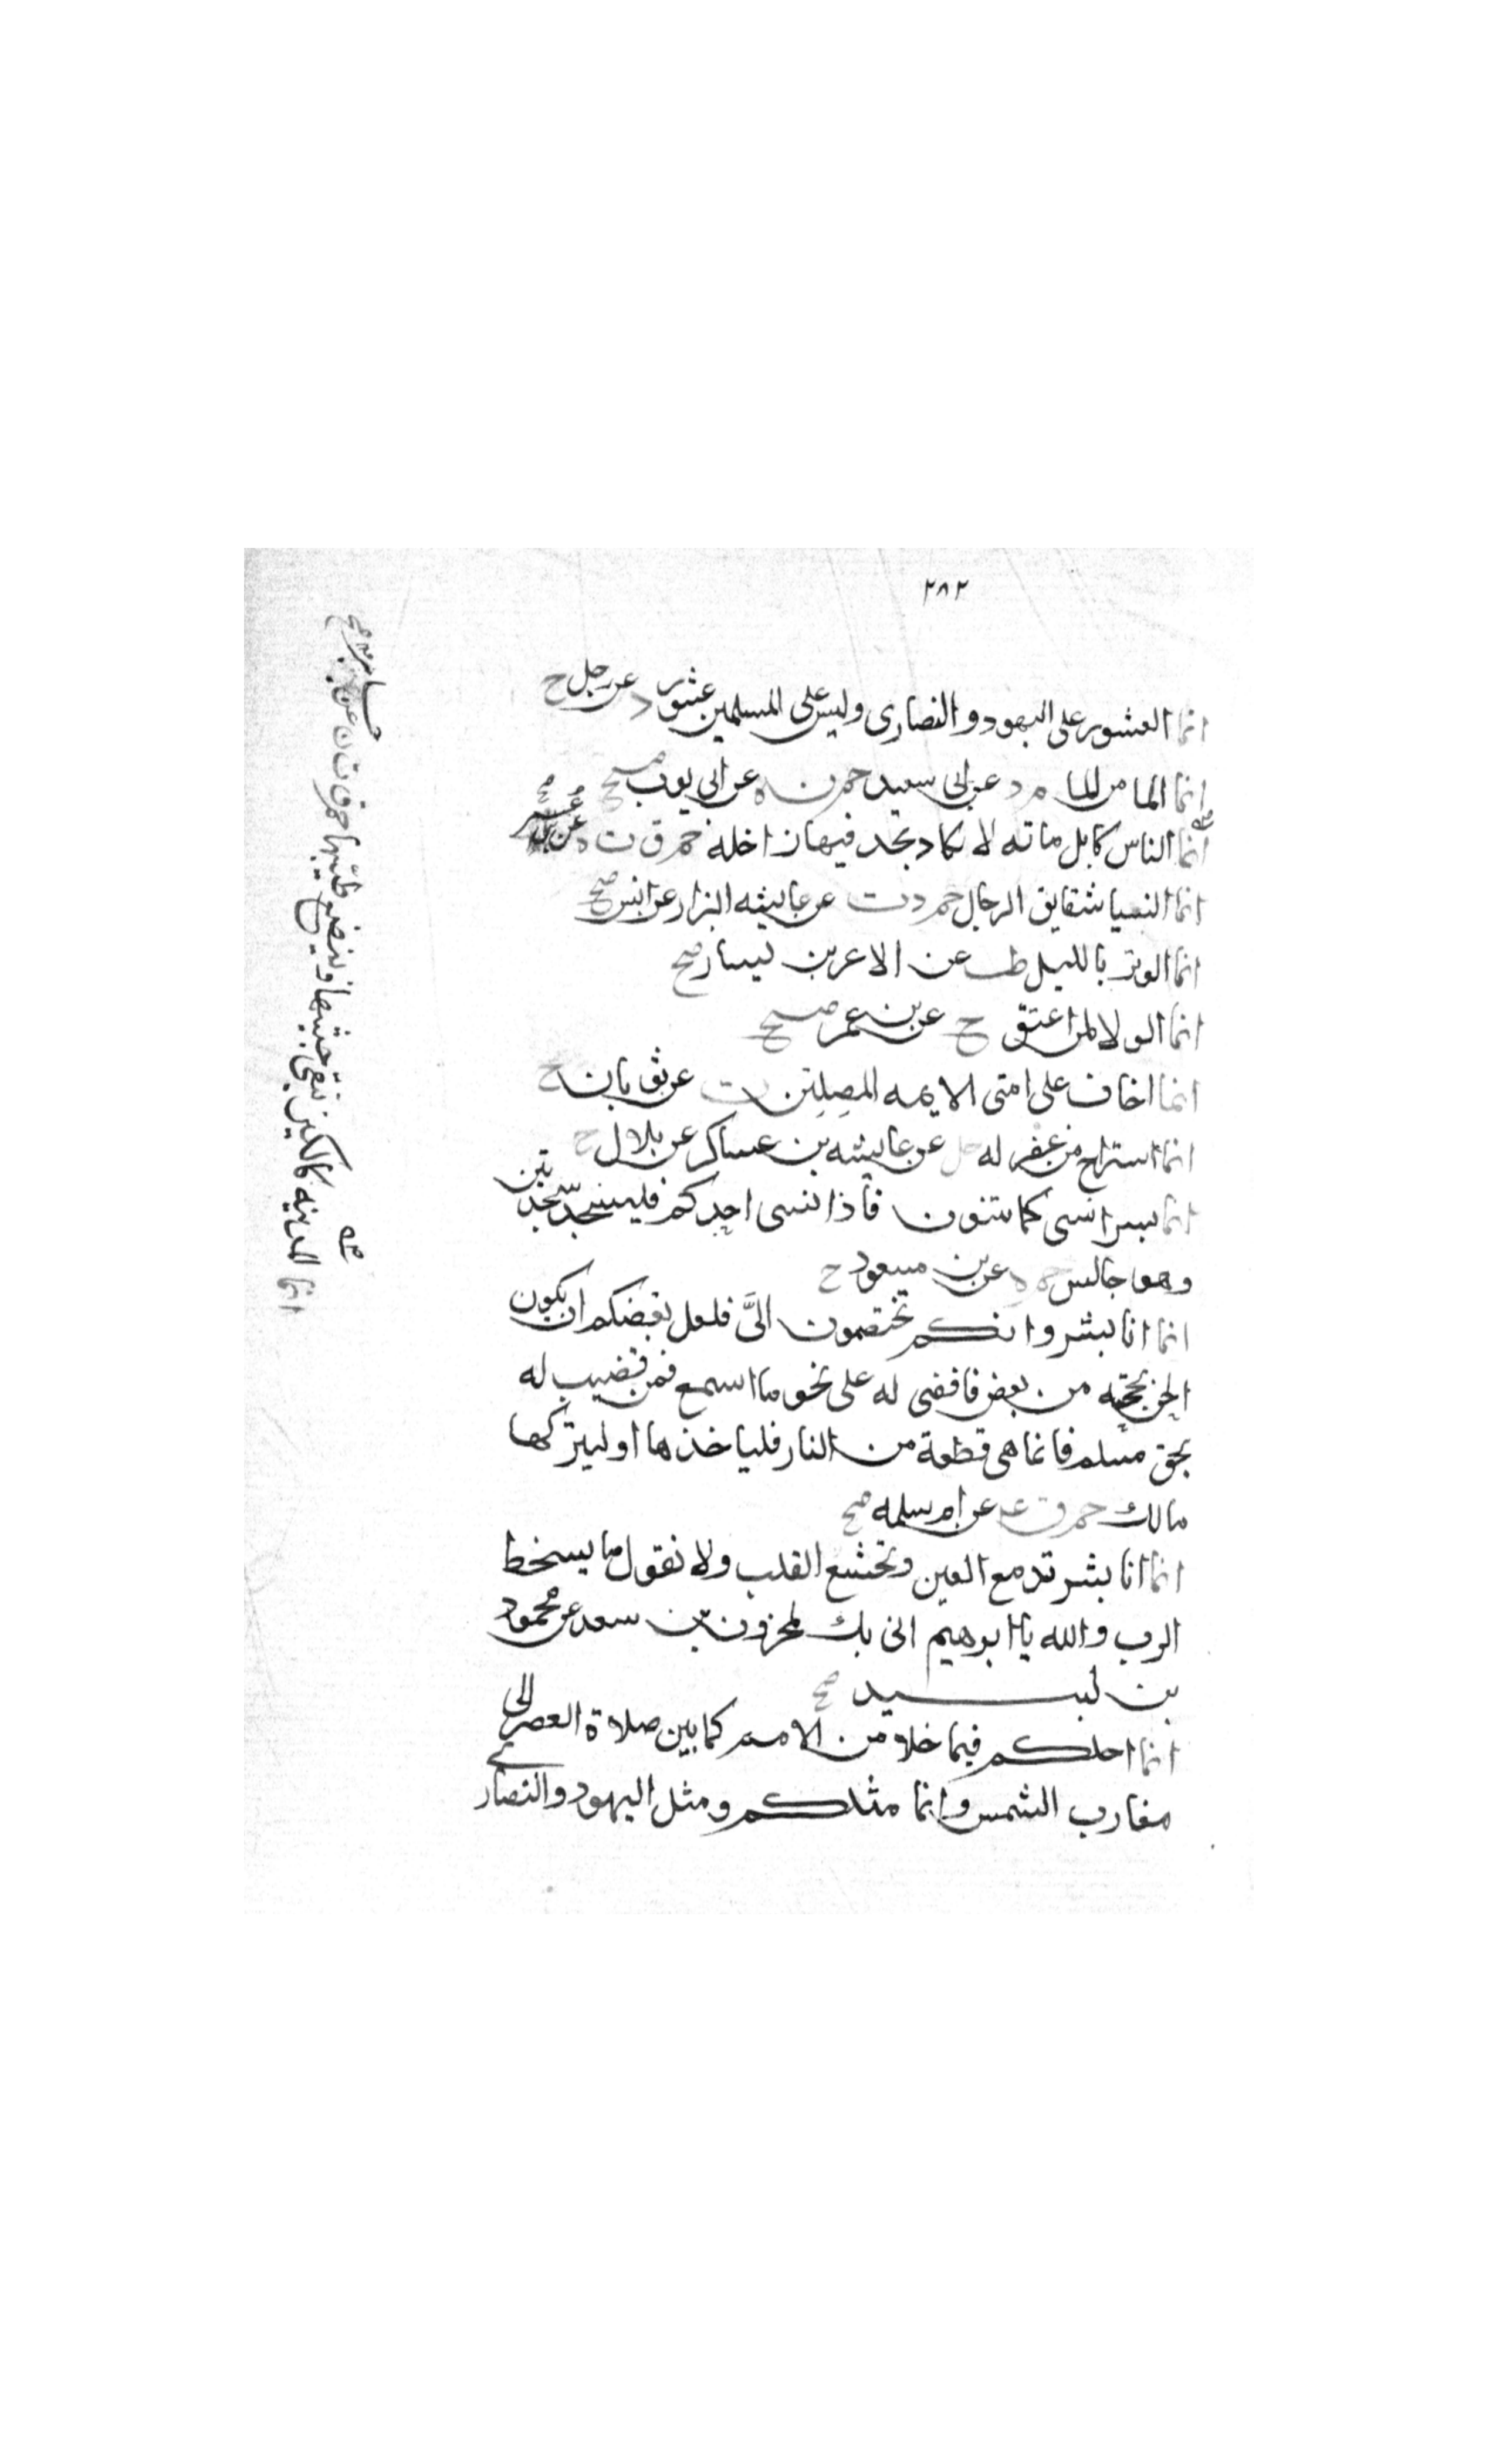 ٢٨٢
انما العشور على اليهود والنصارى وليس على المسلمين عشور د عن رجل ح
انما الما من الما م د عن ابى سعيد حم ن ه عن ابى يوب صحيح
انما الناس كابل ماته لا تكاد تجد فيها راحله حم ق ت ه عن بن عمر صح
انما النسا شقايق الرجال حم د ت عن عايشه البزار عن انس صح
انما الوتر بالليل طب عن الاغر بن يسار صح
انما الولا لمن اعتق خ عن بن عمر صحيح
انما اخاف على امتى الايمه المضلين ت عن ثوبان ح
انما استراح من غفر له حل عن عايشه بن عساكر عن بلال ح
انما بشر انسى كما تنسون فاذا نسى احدكم فليسجد سجدتين
وهو جالس حم ه عن بن مسعود ح
انما انا بشر وانكم تختصمون الىَّ فلعل بعضكم ان يكون
الحن بحجته من بعض فاقضى له على نحو ما اسمع فمن قضيت له
بحق مسلم فانما هى قطعة من النار فلياخذها او ليتركها
مالك حم ق عد عن ام سلمه صح
انما انا بشر تدمع العين وتخشع القلب ولا نقول ما يسخط
الرب والله يا ابرهيم انى بك لمحزون بن سعد عن محمود
بن لبيد صح
انما اجلكم فيما خلا من الامم كما بين صلاة العصر الى
مغارب الشمس وانما مثلكم ومثل اليهود والنصارى
انما المدينه كالكير تنفى خبثها وتنصع طيبها حم ق ت ن عن جابر صح